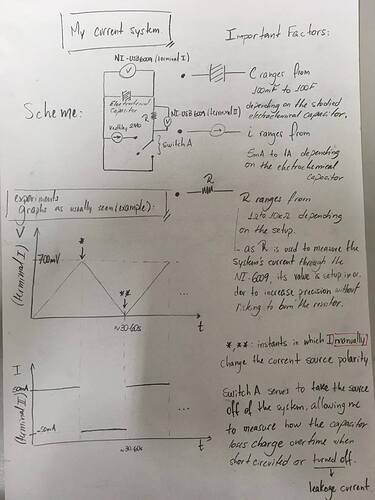 My current system
Important Factors:
NI-USB6009 (terminal I)
V
Scheme:
Electrochemical
Capacitor
R
NI-USB6009 (terminal II)
V
Keithley 2410
switch A
C ranges from
100mF to 100F
depending on the studied
electrochemical capacitor.
i ranges from
5mA to 1A depending
on the electrochemical
capacitor
experiments
graphs as usually seen (example):
R
R ranges from
1Ω to 10kΩ depending
on the setup.
- as R is used to measure the
system's current through the
NI-6009, its value is setup in or
der to increase precision without
risking to burn the resistor.
V
(terminal I)
700mV
*
**
~30-60s
t
...
*,**: instants in which I manually
change the current source polarity
I
(terminal II)
50mA
-50mA
...
~30-60s
t
Switch A serves to take the source
off of the system, allowing me
to measure how the capacitor
loses charge overtime when
short circuited or turned off.
leakage current